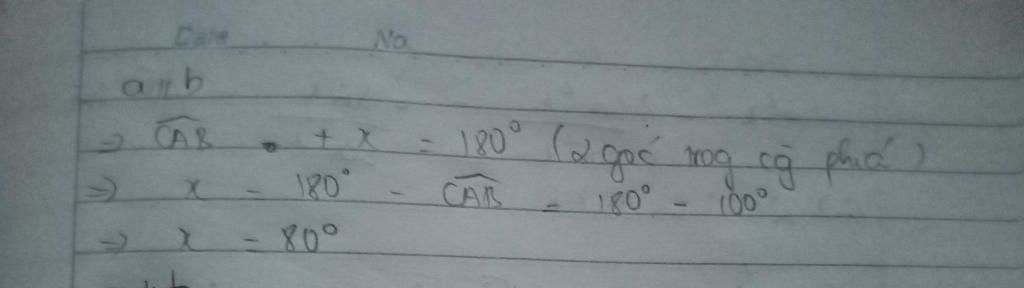 Date No
a // b
=> \widehat{CAB} + x = 180° (2 góc trog cg phía)
=> x = 180° - \widehat{CAB} = 180° - 100°
=> x = 80°